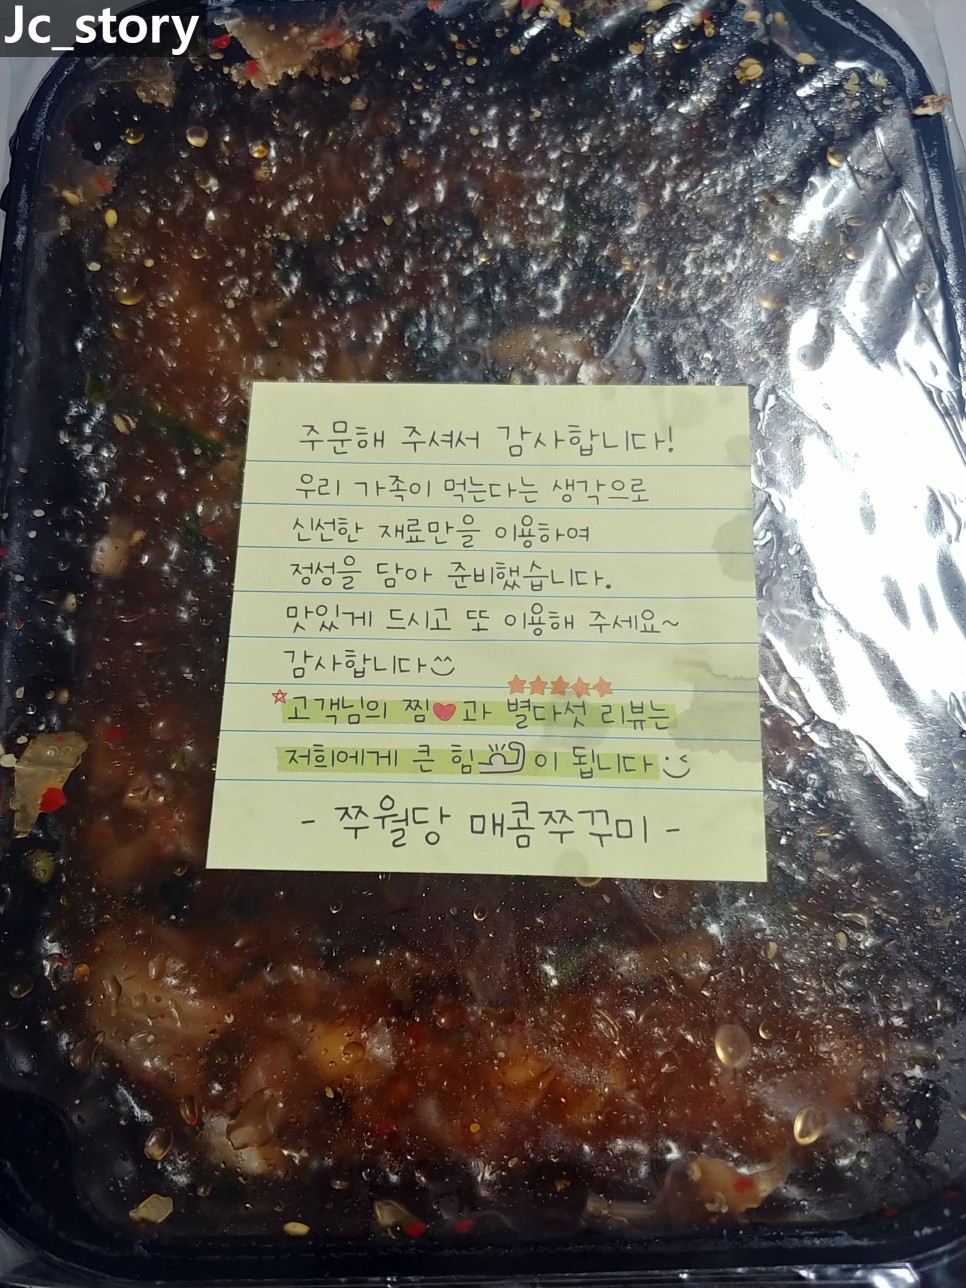 Jc_story
주문해 주셔서 감사합니다!
우리 가족이 먹는다는 생각으로
신선한 재료만을 이용하여
정성을 담아 준비했습니다.
맛있게 드시고 또 이용해 주세요~
감사합니다
고객님의 찜과 별다섯 리뷰는
저희에게 큰 힘이 됩니다
- 쭈월당 매콤쭈꾸미 -